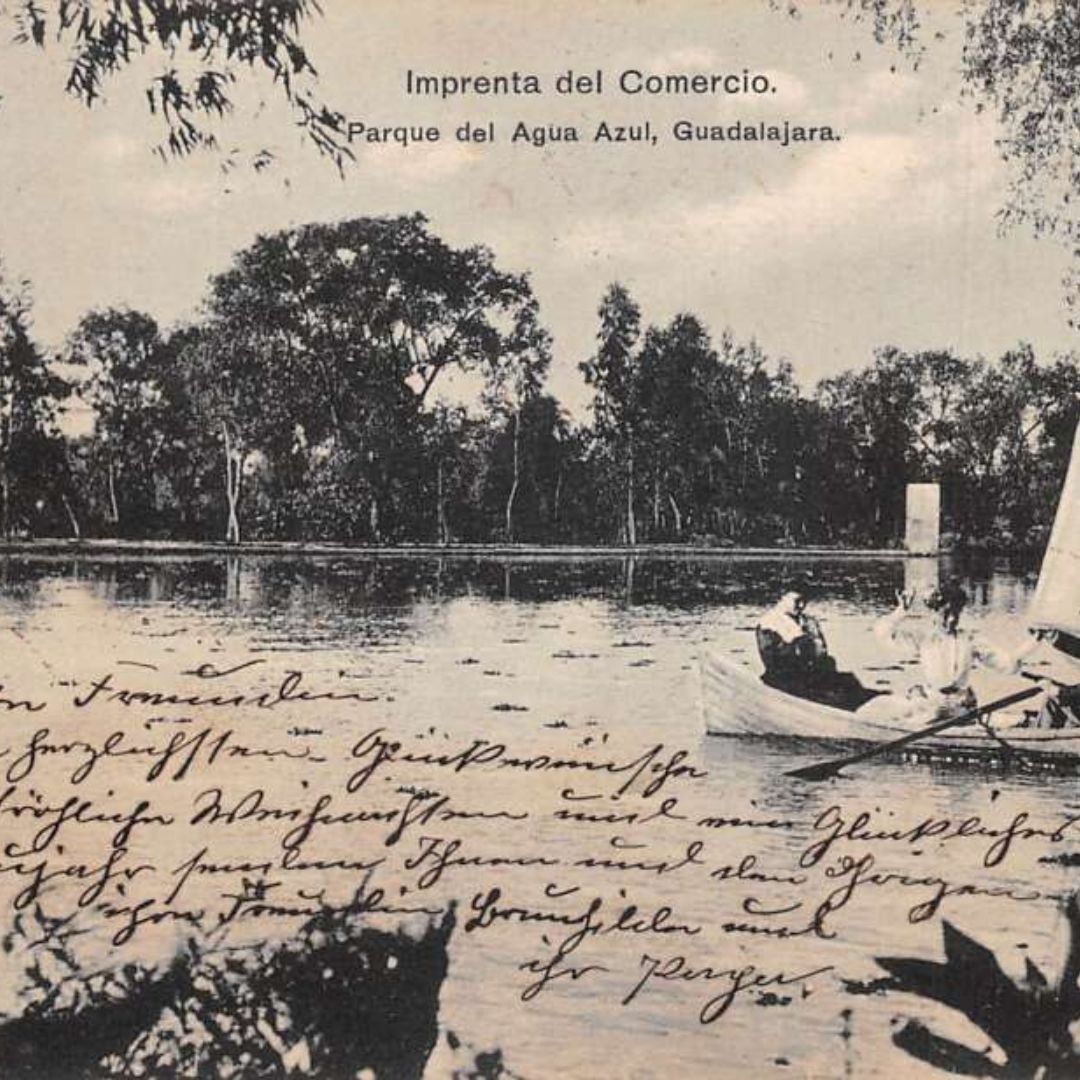 Imprenta del Comercio.
Parque del Agua Azul, Guadalajara.
Freunden.
herzlichsten Glückwünsche
fröhliche Weihnachten und ein Glückliches
ujahr senden Ihnen und den Ihrigen
ihre Freundin Brunhilde und
ihr